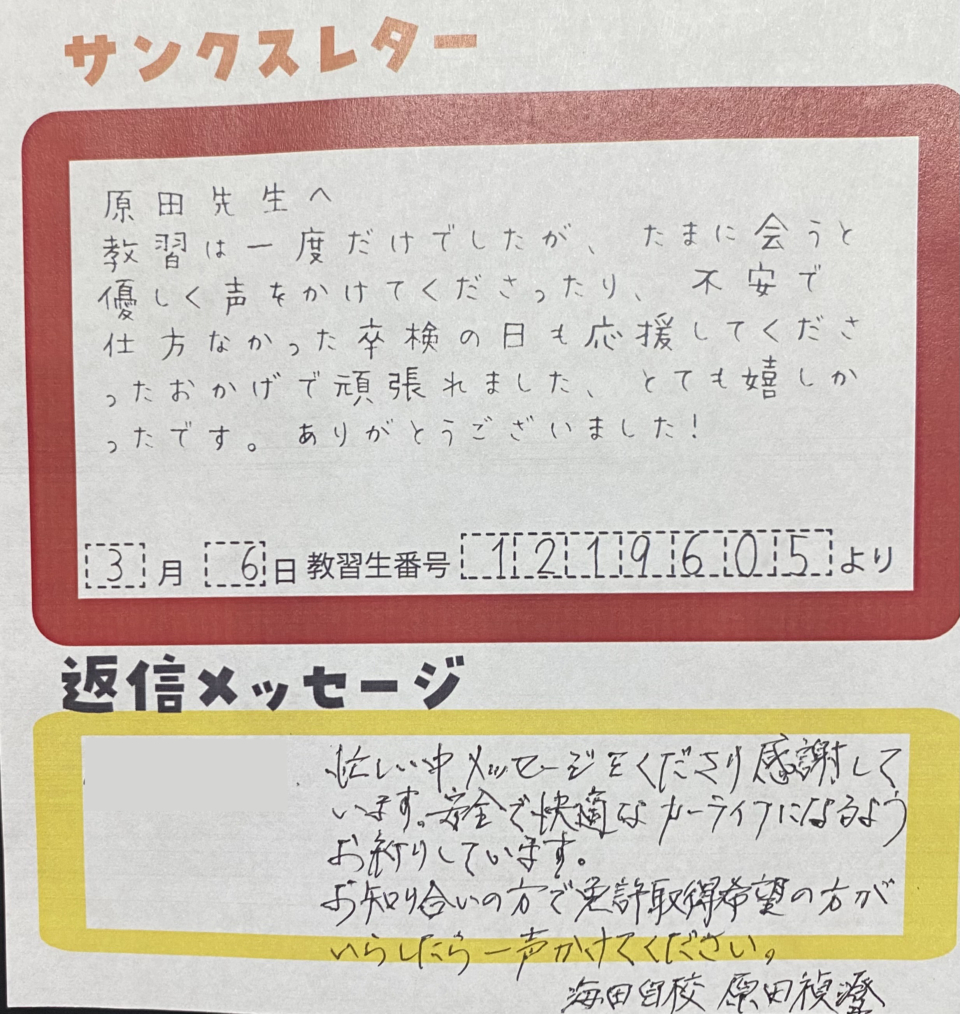 サンクスレター
原田先生へ
教習は一度だけでしたが、たまに会うと
優しく声をかけてくださったり、不安で
仕方なかった卒検の日も応援してくださ
ったおかげで頑張れました、とても嬉しか
ったです。ありがとうございました!
3月 6日 教習生番号 1219605より
返信メッセージ
忙しい中メッセージをくださり感謝して
います。安全で快適なカーライフになるよう
お祈りしています。
お知り合いの方で免許取得希望の方が
いらしたら一声かけてください。
海田自校 原田禎